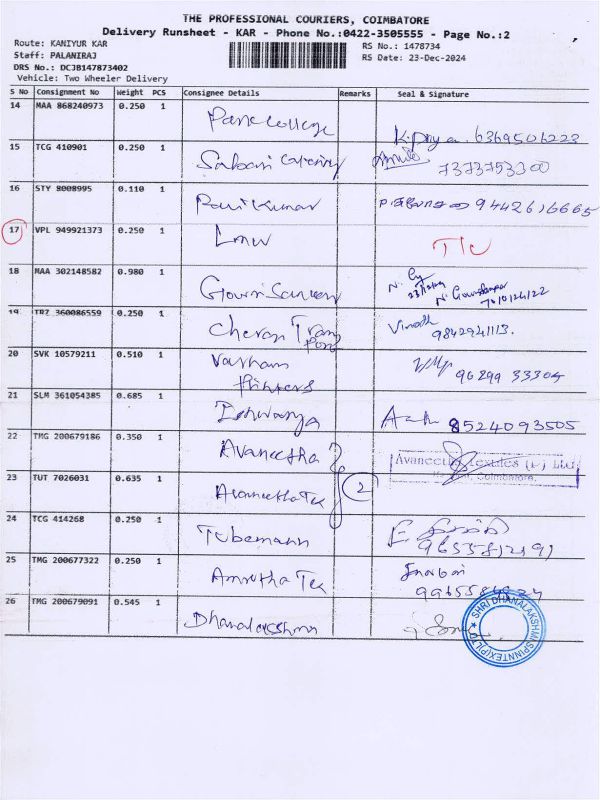 THE PROFESSIONAL COURIERS, COIMBATORE
Delivery Runsheet - KAR - Phone No.:0422-3505555 - Page No.:2
Route: KANIYUR KAR
RS No.: 1478734
Staff: PALANIRAJ
RS Date: 23-Dec-2024
DRS No.: DCJB147873402
Vehicle: Two Wheeler Delivery
S No Consignment No Weight PCS Consignee Details Remarks Seal & Signature
14 MAA 868240973 0.250 1 Park College
K. Priya 6369506223
15 TCG 410901 0.250 1 Sabari Catering 7373753300
16 STY 8008995 0.110 1 Ravi Kumar 9442616665
17 VPL 949921373 0.250 1 LMW
18 MAA 302148582 0.980 1 Gowri Sankar
19 TRZ 360086559 0.250 1 Cheran Trans Vinoth
port 9842941113.
20 SVK 10579211 0.510 1 Varsham
Printers 96299 33304
21 SLM 361054385 0.685 1 Ishwarya 8524093505
22 TMG 200679186 0.350 1 Avaneetha
Avaneetha Textiles (P) Ltd
Coimbatore.
23 TUT 7026031 0.635 1 Avaneetha Tex 2
24 TCG 414268 0.250 1 Tubemann
9655812191
25 TMG 200677322 0.250 1 Amrutha Tex
26 TMG 200679091 0.545 1 Dhanalakshmi
SHRI DHANALAKSHMI SPINNTEX (P) LTD